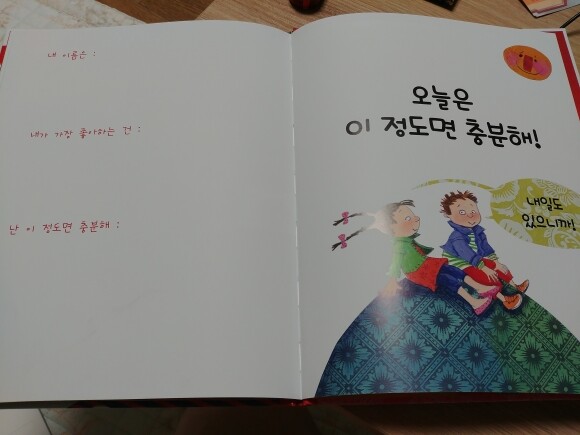 내 이름은 :
내가 가장 좋아하는 건 :
난 이 정도면 충분해 :
오늘은
이 정도면 충분해!
내일도
있으니까!